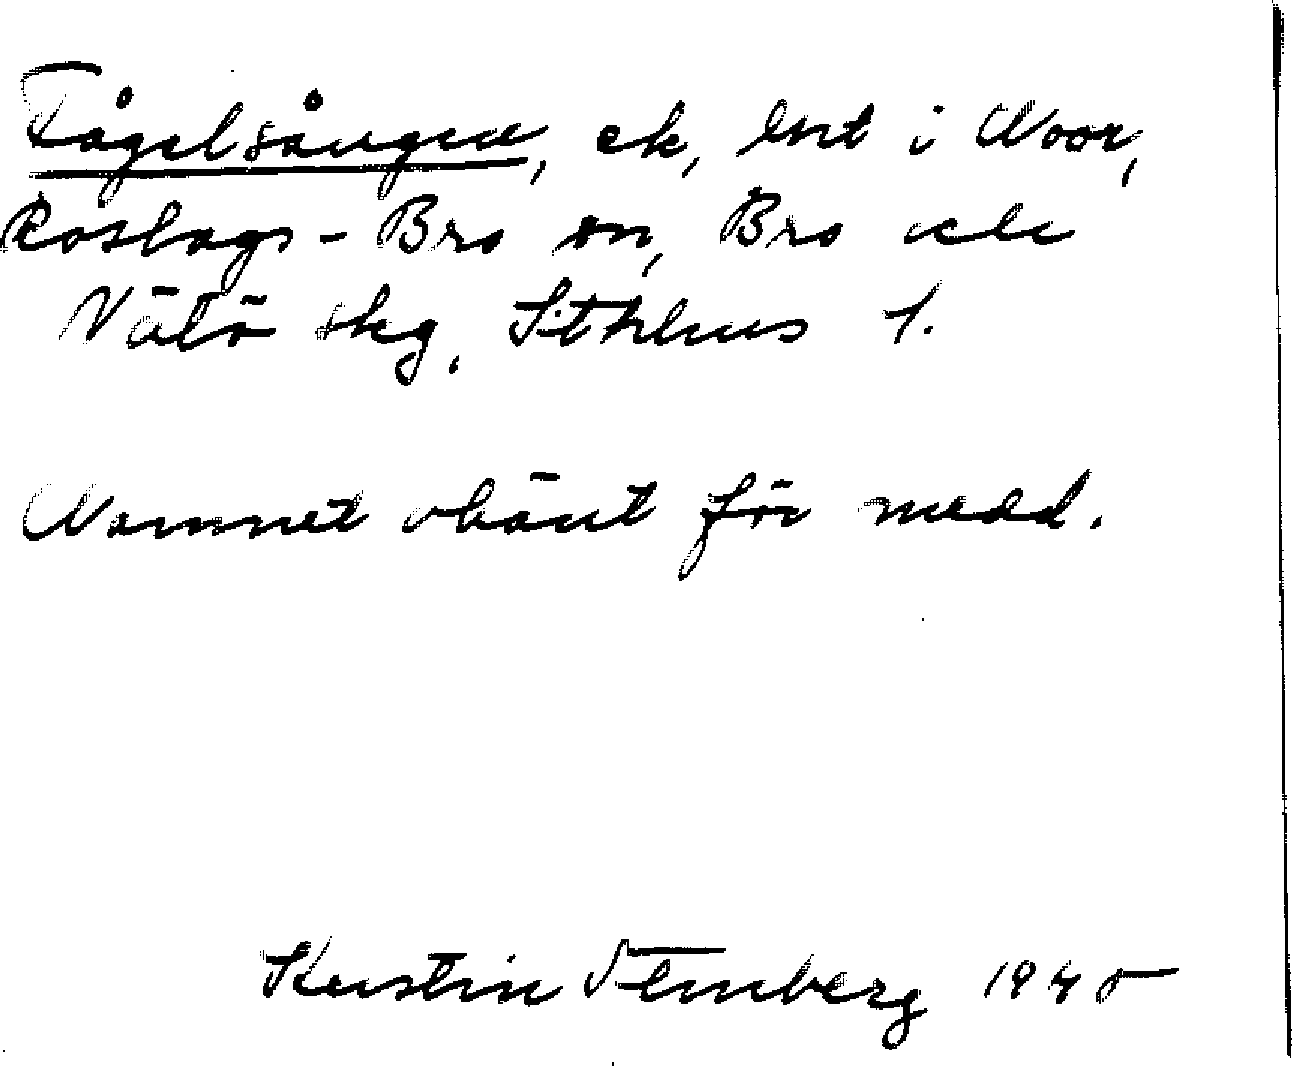 Fågelsången, ek, lnt i Noor,
Roslags-Bro sn, Bro och
Vätö skg, Sthlms l.
Namnet okänt för medd.
Kerstin Stenberg 1945